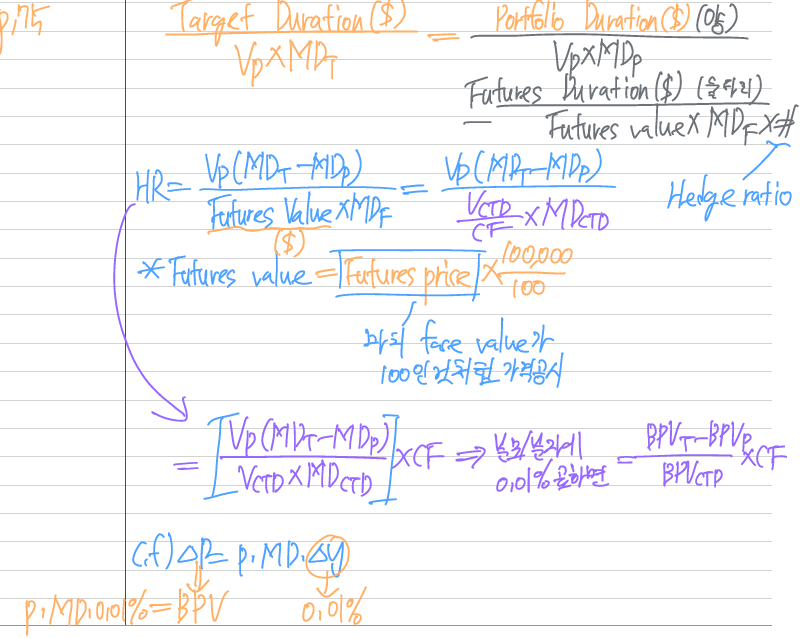 p.75
Target Duration($) / Vp×MD_T = Portfolio Duration($) / Vp×MDp
Futures Duration($) / Futures value×MD_F×#
Hedge ratio
HR = Vp(MD_T-MDp) / Futures Value×MD_F = Vp(MD_T-MDp) / V_CTD/CF ×MD_CTD
($)
* Futures value = Futures price × 100,000/100
마치 face value가
100인 것처럼 가격공시
= [Vp(MD_T-MDp) / V_CTD×MD_CTD]×CF ⇒ 분모/분자에 0.01%곱하면 = BPV_T-BPVp / BPV_CTD ×CF
c.f) ΔP= p.MD.Δy
p.MD.0.01%=BPV 0.01%